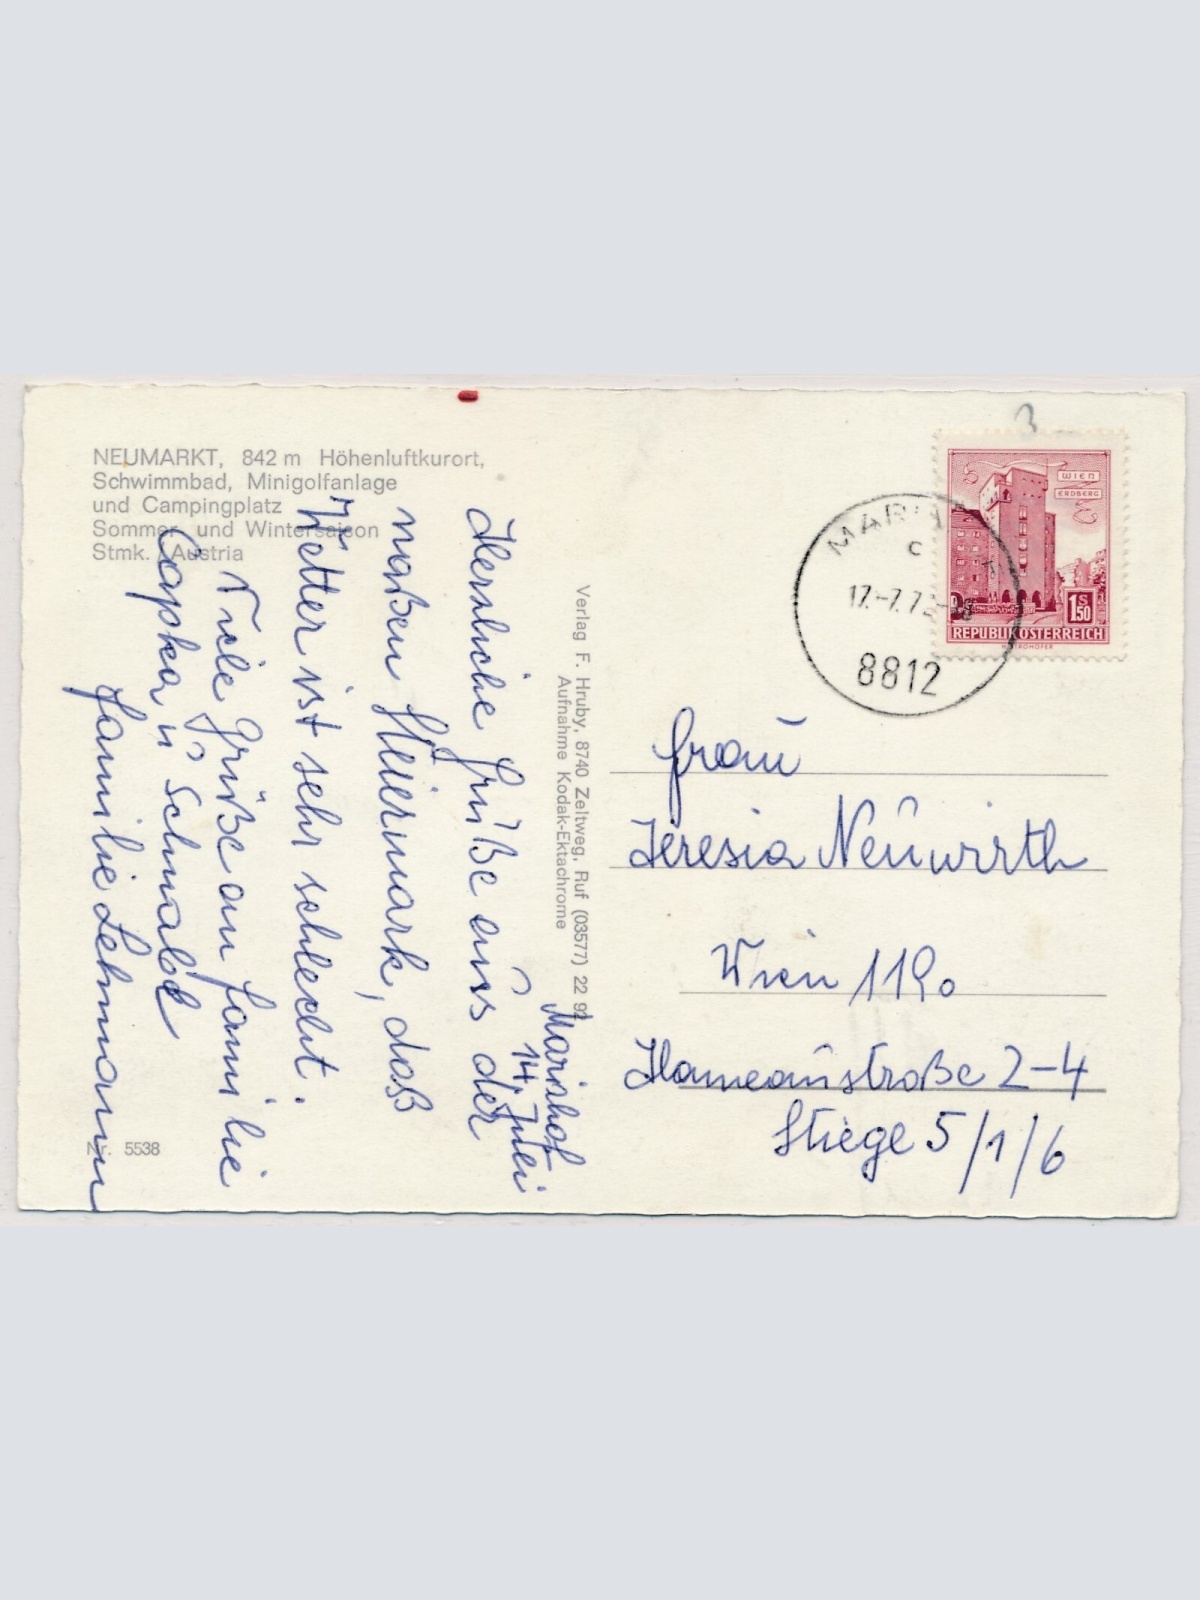 NEUMARKT, 842 m Höhenluftkurort,
Schwimmbad, Minigolfanlage
und Campingplatz
Sommer- und Wintersaison
Stmk. Austria
Mariahof
14. Juli
Herzliche Grüße aus der
naßen Steiermark, das
Wetter ist sehr schlecht.
Viele Grüße an Familie
Capka u. Schwabe
Familie Lehmann
Nr. 5538
Verlag F. Hruby, 8740 Zeltweg, Ruf (03577) 22 92
Aufnahme Kodak-Ektachrome
3
WIEN
ERDBERG
1 S 50
REPUBLIK ÖSTERREICH
MARIA
C
17.-7.7
8812
Frau
Teresia Neuwirth
Wien 1190
Hameaustraße 2-4
Stiege 5/1/6